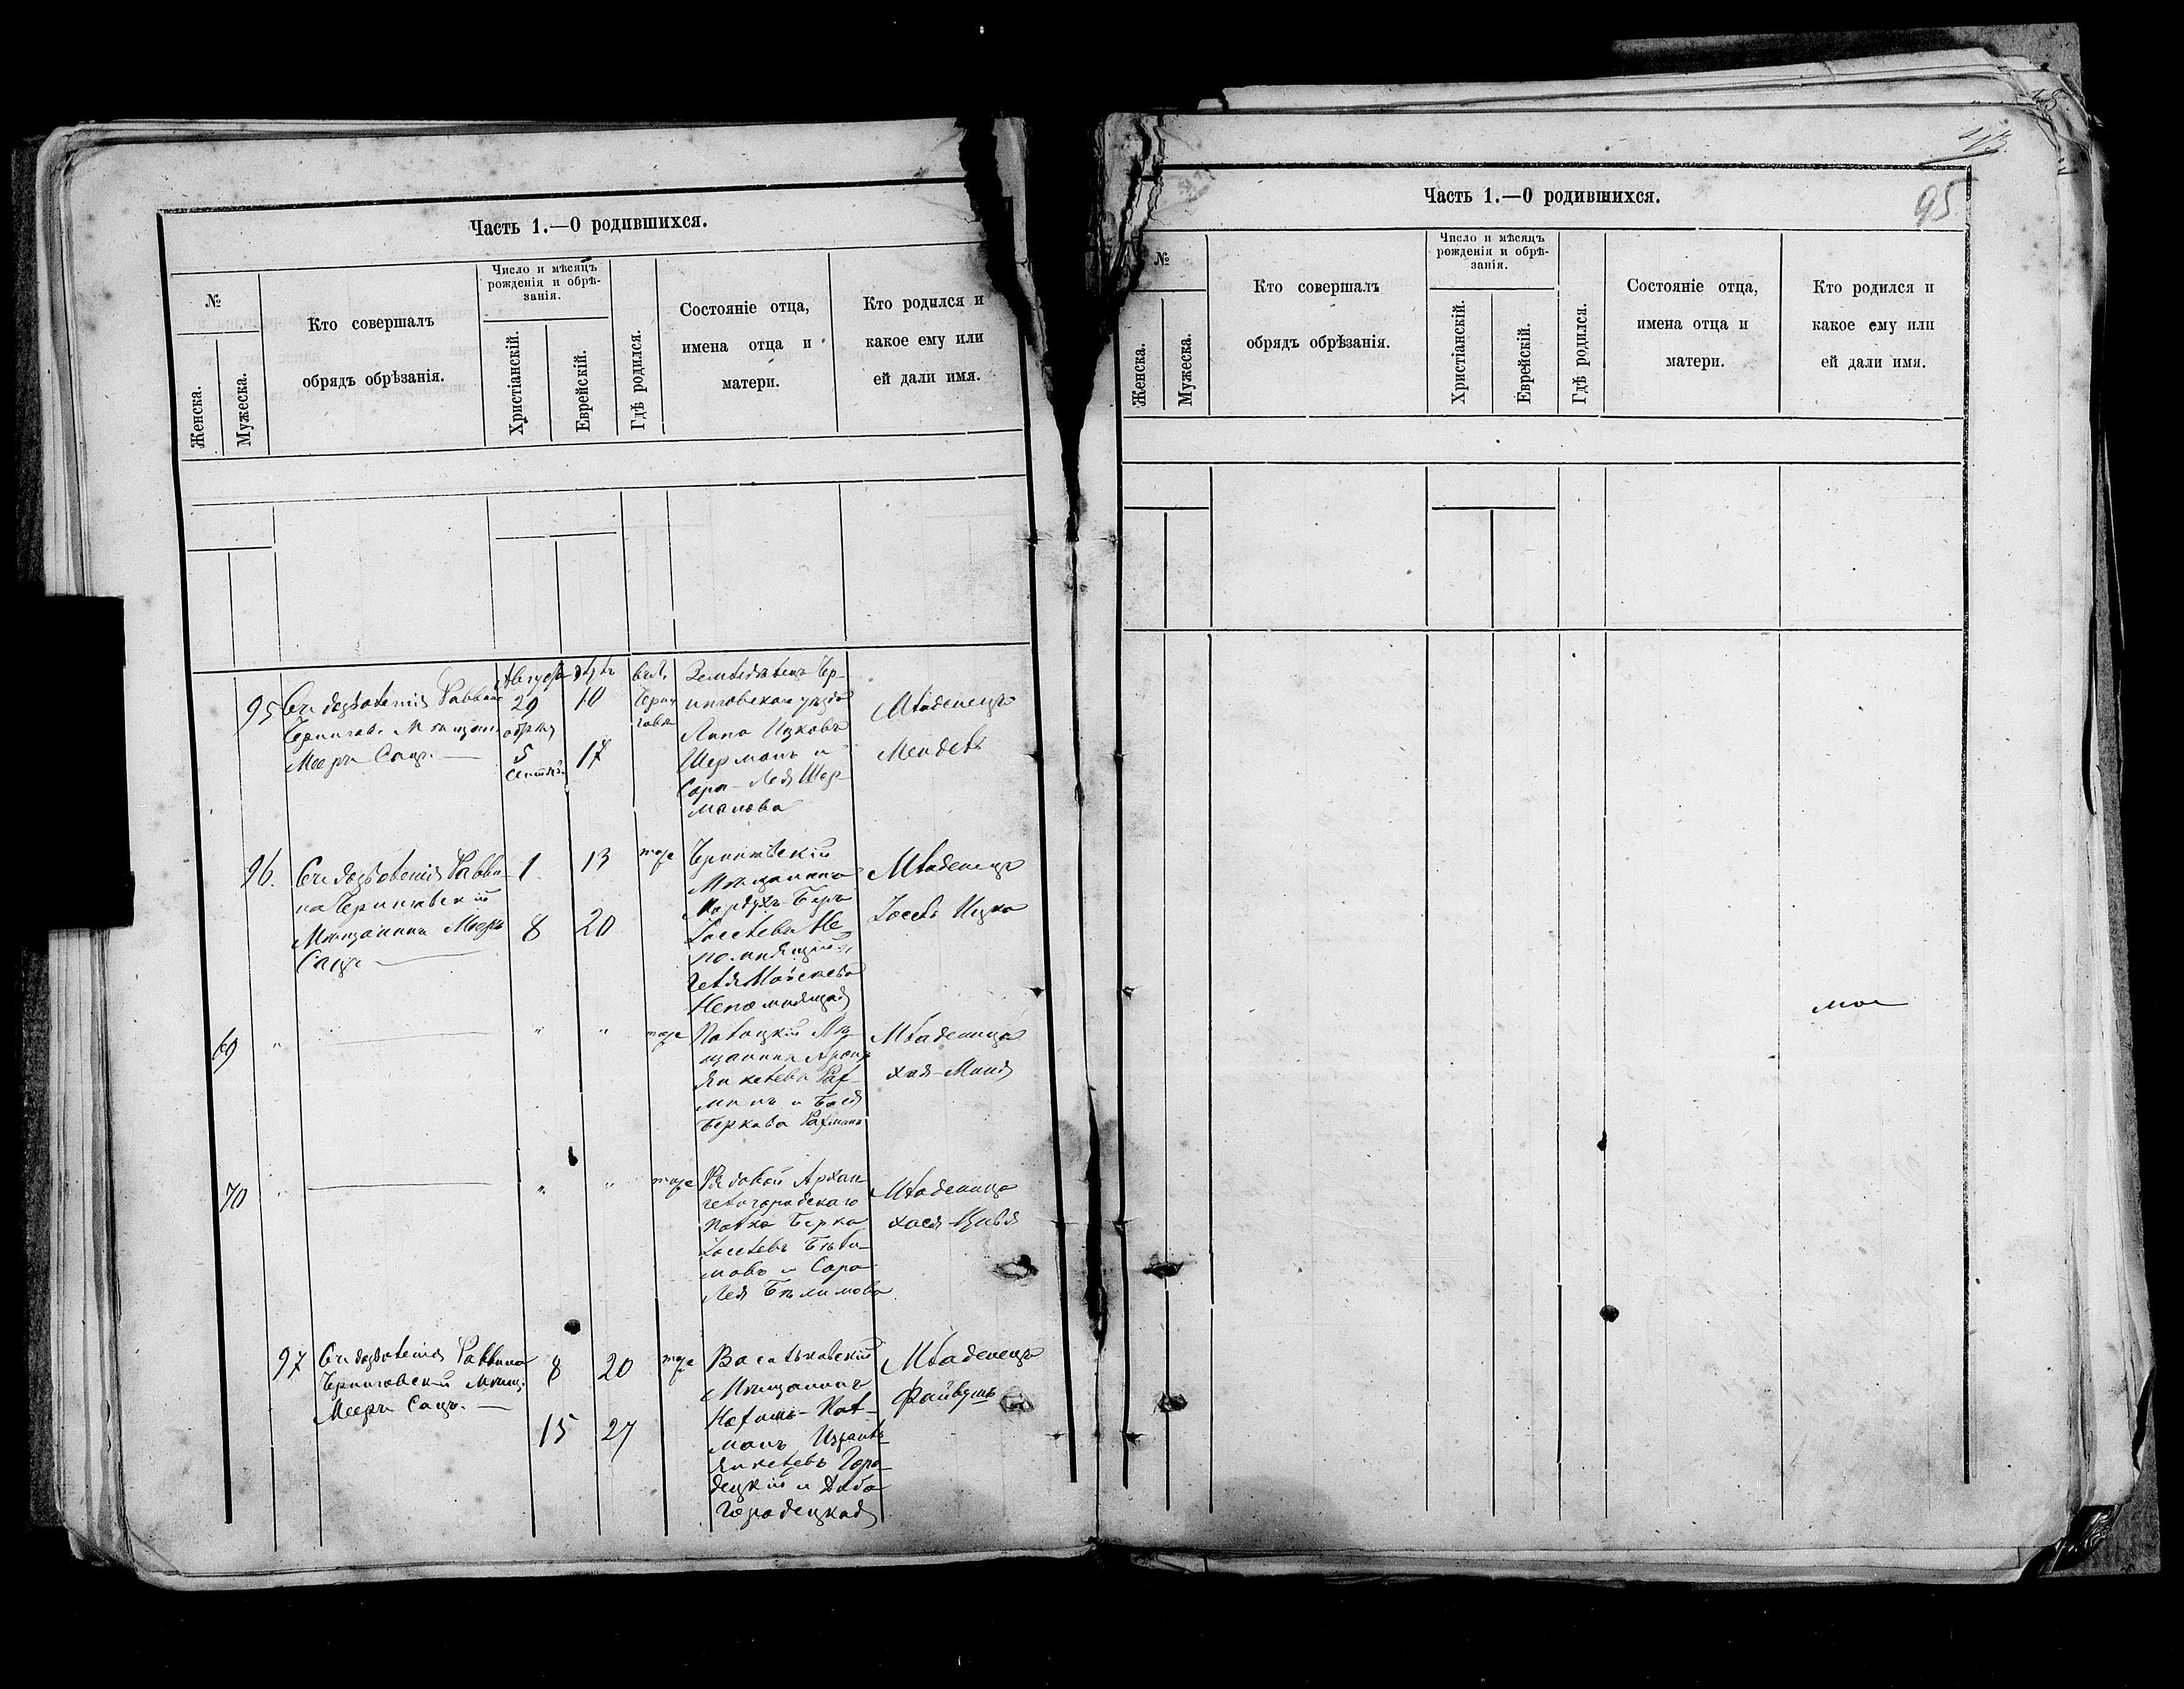 Часть 1.—О родившихся.
№
Женска.
Мужеска.
Кто совершалъ
обрядъ обрѣзанія.
Число и мѣсяцъ
рожденія и обрѣ-
занія.
Христіанскій.
Еврейскій.
Гдѣ родился.
Состояніе отца,
имена отца и
матери.
Кто родился и
какое ему или
ей дали имя.
95
Съ дозволенія Раввина
Чернигов. Мѣщан.
Мееръ Сацъ.
Августа
29
5
Сентяб.
10
17
въ г.
Черни
говѣ
Земледѣлецъ Чер-
ниговскаго уѣзда
Липа Ицковъ
Шерманъ и
Сара-Лея Шер-
манова
Младенецъ
Мендель
96.
Съ дозволенія Равви-
на Черниговскій
Мѣщанинъ Мееръ
Сацъ
1
8
13
20
тоже
Черниговскій
Мѣщанинъ
Мордухъ-Беръ
Іоселевъ Не-
помнящій и
Геля
Непомнящая
Младенецъ
Іосель Ицка
69
"
"
"
тоже
Мѣ-
щанинъ Аронъ
Янкелевъ
манъ и Бася
Беркова
Младеница
Хая-Миня
70
"
"
"
тоже
Рядовой Архан-
гелогородскаго
полка Берка
Іоселевъ Бѣли-
мовъ и Сара
Лея Бѣлимова
Младеница
Хася-Цивя
97
Съ дозволенія Раввина
Черниговскій Мѣщ.
Мееръ Сацъ.
8
15
20
27
тоже
Васильковскій
Мѣщанинъ
Израиль
Янкелевъ Горо-
децкій и
Городецкая
Младенецъ
Файвушъ
Часть 1.—О родившихся.
95
№
Женска.
Мужеска.
Кто совершалъ
обрядъ обрѣзанія.
Число и мѣсяцъ
рожденія и обрѣ-
занія.
Христіанскій.
Еврейскій.
Гдѣ родился.
Состояніе отца,
имена отца и
матери.
Кто родился и
какое ему или
ей дали имя.